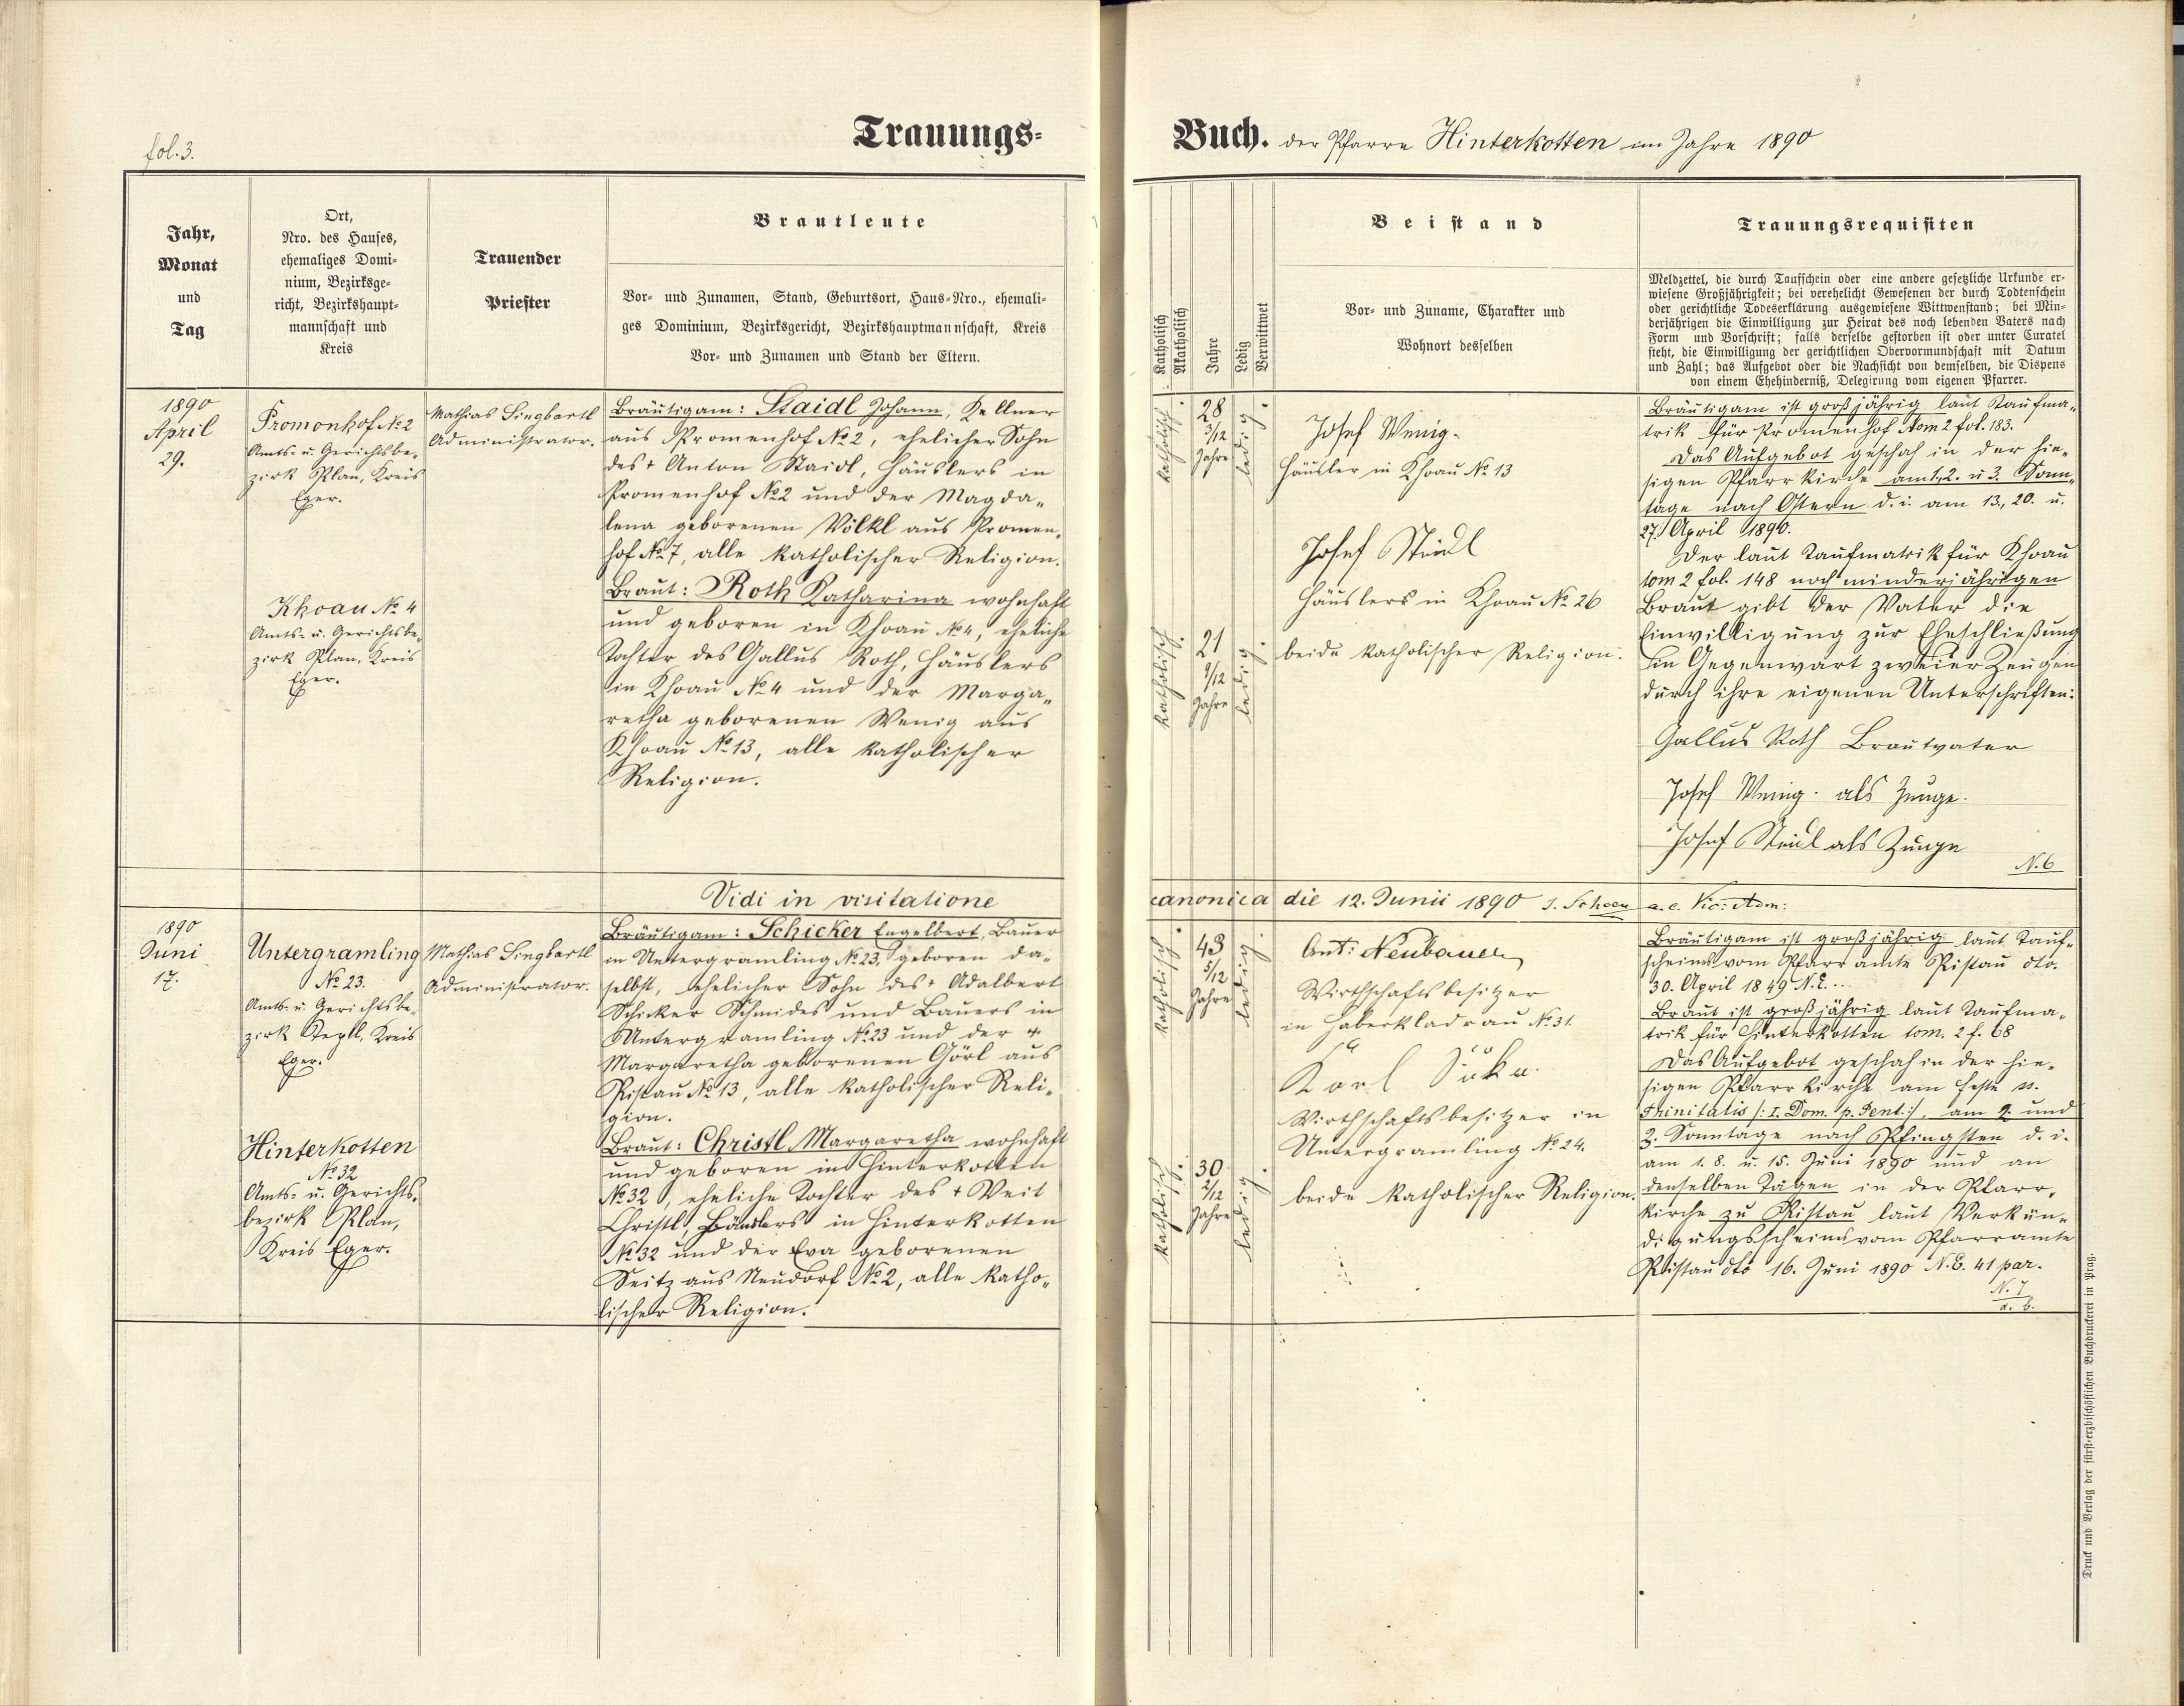 fol. 3.
Trauungs-
Jahr,
Monat
und
Tag
Ort,
Nro. des Hauses,
ehemaliges Domi-
nium, Bezirksge-
richt, Bezirkshaupt-
mannschaft und
Kreis
Trauender
Priester
Brautleute
Vor- und Zunamen, Stand, Geburtsort, Haus-Nro., ehemali-
ges Dominium, Bezirksgericht, Bezirkshauptmannschaft, Kreis
Vor- und Zunamen und Stand der Eltern.
1890
April
29.
Promenhof № 2
Amts- u. Gerichtsbe-
zirk Plan, Kreis
Eger.
Khoau № 4
Amts- u. Gerichtsbe-
zirk Plan, Kreis
Eger.
Mathias Singbartl
Administrator.
Bräutigam: Staidl Johann, Kellner
aus Promenhof № 2, ehelicher Sohn
des † Anton Staidl, Häuslers in
Promenhof № 2 und der Magda-
lena geborenen Völkl aus Promen-
hof № 7, alle katholischer Religion.
Braut: Roth Katharina wohnhaft
und geboren in Khoau № 4, eheliche
Tochter des Gallus Roth, Häuslers
in Khoau № 4 und der Marga-
retha geborenen Wenig aus
Khoau № 13, alle katholischer
Religion.
Vidi in visitatione
1890
Juni
17.
Untergramling
№ 23.
Amts- u. Gerichtsbe-
zirk Tepl, Kreis
Eger.
Hinterkotten
№ 32
Amts- u. Gerichts-
bezirk Plan,
Kreis Eger.
Mathias Singbartl
Administrator.
Bräutigam: Schicker Engelbert, Bauer
in Untergramling № 23, geboren da-
selbst, ehelicher Sohn des † Adalbert
Schicker Schmides und Bauers in
Untergramling № 23 und der †
Margaretha geborenen Görl aus
Pistau № 13, alle katholischer Reli-
gion.
Braut: Christl Margaretha wohnhaft
und geboren in Hinterkotten
№ 32, eheliche Tochter des † Veit
Christl, Häuslers in Hinterkotten
№ 32 und der Eva geborenen
Seitz aus Neudorf № 2, alle katho-
lischer Religion.
Buch. der Pfarre Hinterkotten im Jahre 1890
Katholisch
Akatholisch
Jahre
Ledig
Verwittwet
Beistand
Vor- und Zuname, Charakter und
Wohnort desselben
Trauungsrequisiten
Meldzettel, die durch Taufschein oder eine andere gesetzliche Urkunde er-
wiesene Großjährigkeit; bei verehelicht Gewesenen der durch Todtenschein
oder gerichtliche Todeserklärung ausgewiesene Wittwenstand; bei Min-
derjährigen die Einwilligung zur Heirat des noch lebenden Vaters nach
Form und Vorschrift; falls derselbe gestorben ist oder unter Curatel
steht, die Einwilligung der gerichtlichen Obervormundschaft mit Datum
und Zahl; das Aufgebot oder die Nachsicht von demselben, die Dispens
von einem Ehehinderniß, Delegirung vom eigenen Pfarrer.
katholisch.
28
3/12
Jahre
ledig.
katholisch.
21
9/12
Jahre
ledig.
Josef Wenig.
Häusler in Khoau № 13
Josef Steidl
Häuslers in Khoau № 26
beide katholischer Religion.
Bräutigam ist großjährig laut Taufma-
trik für Promenhof tom 2 fol. 183.
Das Aufgebot geschah in der hie-
sigen Pfarrkirche am 1., 2. u 3. Sonn-
tage nach Ostern d. i. am 13., 20. u.
27. April 1890.
Der laut Taufmatrik für Khoau
tom 2 fol. 148 noch minderjährigen
Braut gibt der Vater die
Einwilligung zur Eheschließung
in Gegenwart zweier Zeugen
durch ihre eigenen Unterschriften:
Gallus Roth Brautvater
Josef Wenig als Zeuge.
Josef Steidl als Zeuge
N. 6
canonica die 12. Junii 1890 J. Schoen a. e. Vic: Adm:
katholisch.
43
5/12
Jahre
ledig.
katholisch.
30
2/12
Jahre
ledig.
Ant: Neubauer
Wirthschaftsbesitzer
in Haberkladrau № 31.
Karl
Wirthschaftsbesitzer in
Untergramling № 24.
beide katholischer Religion.
Bräutigam ist großjährig laut Tauf-
scheines vom Pfarramte Pistau dto.
30. April 1849 N. E...
Braut ist großjährig laut Taufma-
trik für Hinterkotten tom. 2 f. 68
Das Aufgebot geschah in der hie-
sigen Pfarrkirche am Feste ss.
Trinitatis /: I. Dom. p. Pent :/, am 2. und
3. Sonntage nach Pfingsten d. i.
am 1. 8. u. 15. Juni 1890 und an
denselben Tagen in der Pfarr-
kirche zu Pistau laut Verkün-
digungsscheines vom Pfarramte
Pistau dto 16. Juni 1890 N. E. 41 par.
N. 7
a. b.
Druck und Verlag der fürst-erzbischöflichen Buchdruckerei in Prag.